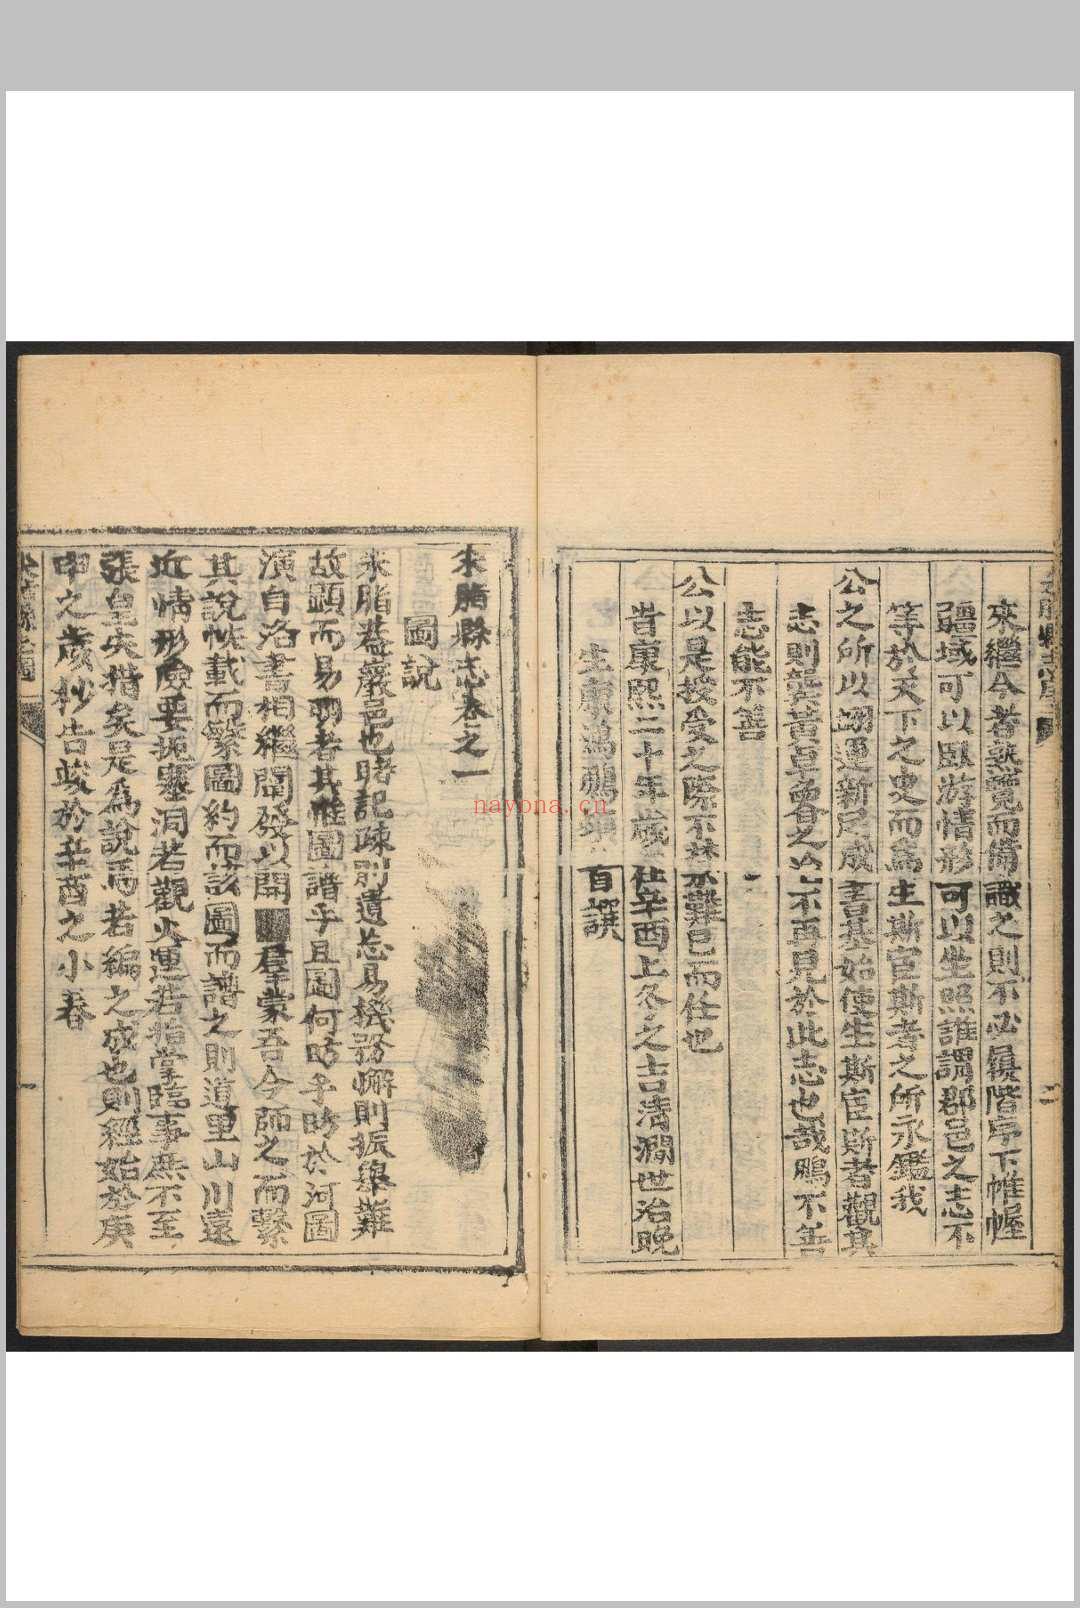 來繼今者孰覽而備識之則不必履階序下帷幄
疆域可以臥游情形可以坐照誰謂郡邑之志不
等於天下之史而爲生斯宦斯者之所永鑑哉
公之所以翊運新邑成 書基始使生斯宦斯者觀其
志則龔黃卓魯之治不再見於此志也哉鵬不善
志能不善
公以是授受之際不 不難已而任也
旨康熙二十年歲在辛酉上冬之吉清澗世治晚
生 鴻鵬
自譔
米脂縣志卷之一
圖說
米脂蕞巖邑也睹記疎則遺忘易機務懈則振舉難
故顯而易明者其惟圖譜乎且圖何昉乎昉於河圖
演自洛書相繼闡發以開 羣蒙吾今師之而繫
其說帙載而繁圖約而該圖而譜之則道里山川遠
近情形險要扼塞洞若觀火運若指掌臨事庶不至
張皇失措矣是爲說焉若編之成也則經始於庚
申之歲杪告竣於辛酉之小春
米脂縣之圖
nayona.cn